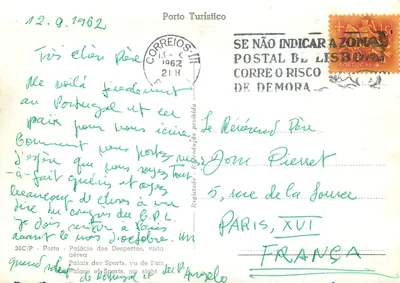 12.9.1962
Porto Turístico
Très cher Père
Me voilà finalement
au Portugal et en
paix pour vous écrire.
Comment vous portez-vous
J'espère que vous soyez tout
-à-fait guéri et ayez
beaucoup de choses à me
dire
je dois rentrer à Paris
avant le mois d'octobre. Un
grand
de Portugal et du P. Angelo
CORREIOS
1962
21H
SE NÃO INDICAR A ZONA
POSTAL DE LISBOA
CORRE O RISCO
DE DEMORA
Le Révérend Père
Dom Pierret
5, rue de la Source
PARIS, XVI
FRANÇA
20C/P - Porto - Palácio dos Desportos, vista
aérea
Palais des Sports, vu de l'air
Palace of Sports, air sight